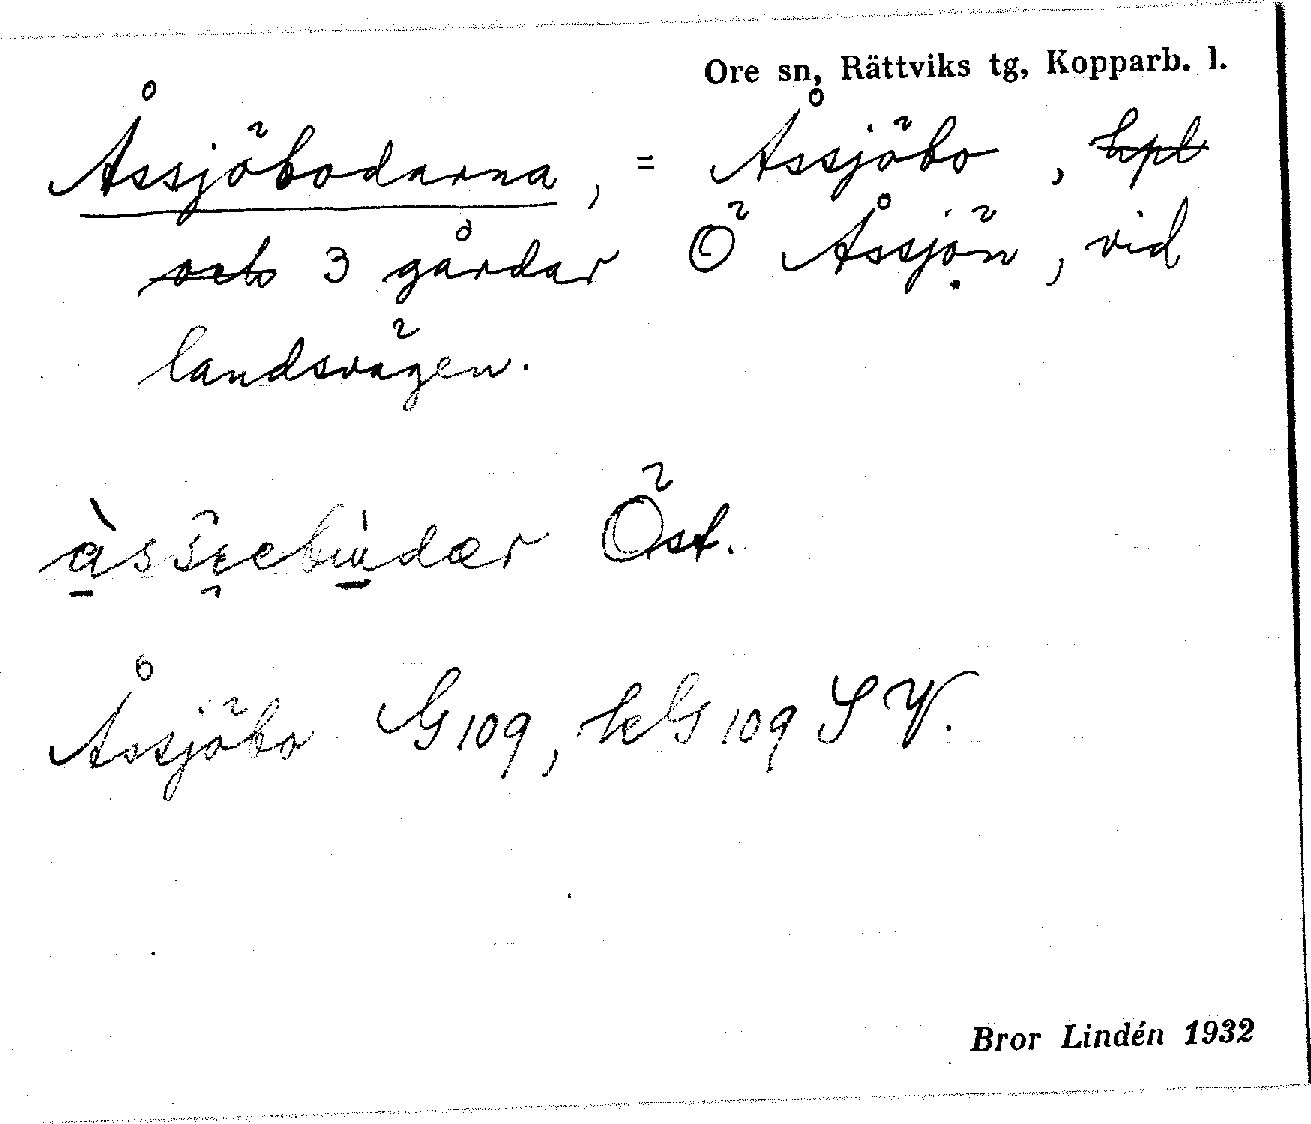 Ore sn, Rättviks tg, Kopparb. l.
Åssjöbodarna, = Åssjöbo, hpl
och 3 gårdar Ö Åssjön, vid
landsvägen.
Öst.
Åssjöbo G109, hG109 SV.
Bror Lindén 1932